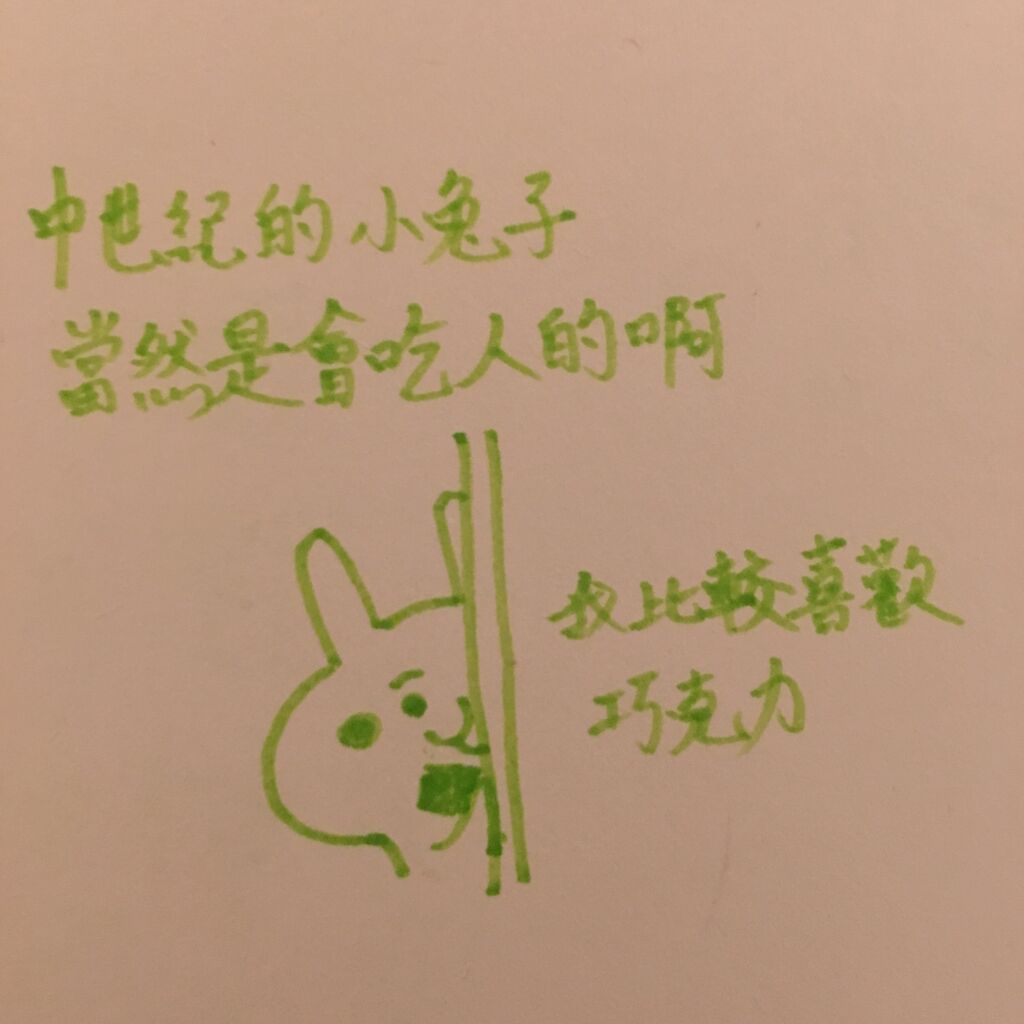 中世紀的小兔子
當然是會吃人的啊
我比較喜歡
巧克力